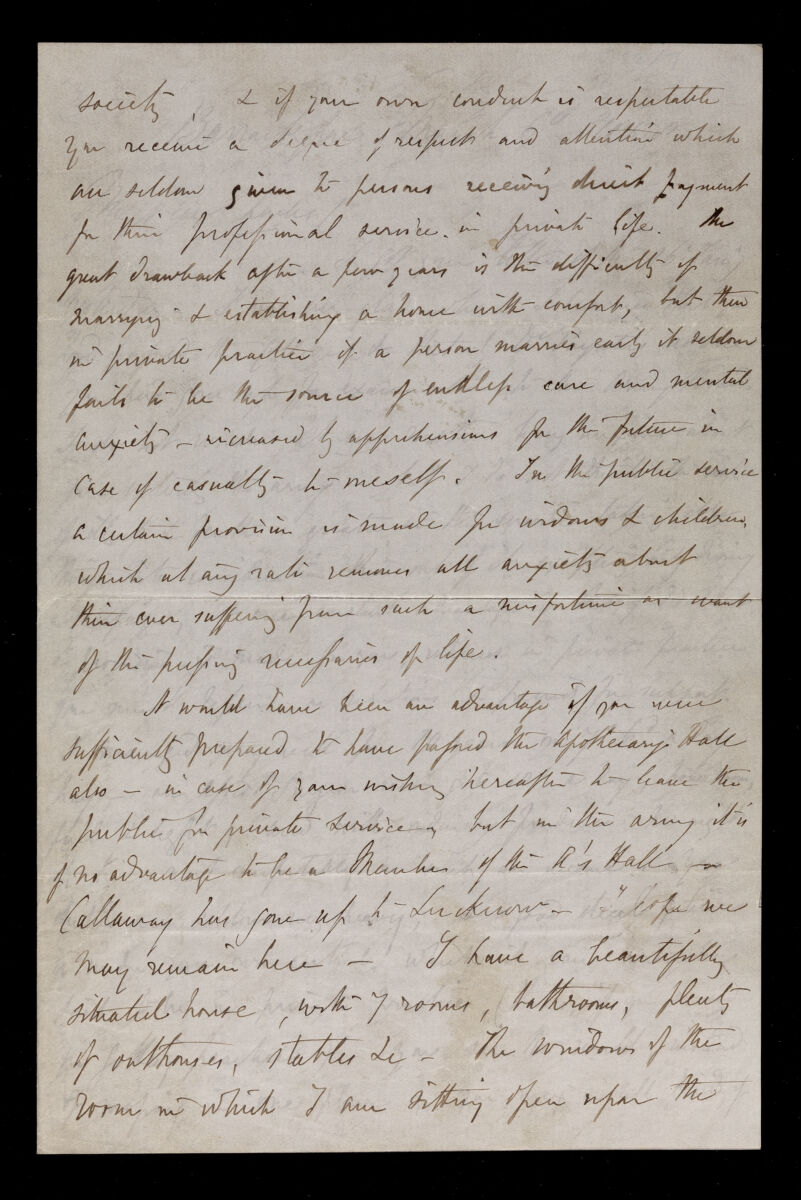 society, & if your own conduct is respectable
you receive a degree of respect and attention which
are seldom given to persons receiving direct payment
for their professional service in private life. The
great drawback after a few years is the difficulty of
marrying & establishing a home with comfort, but then
in private practice if a person marries early it seldom
fails to be the source of endless care and mental
anxiety – increased by apprehensions for the future in
case of casualty to oneself. In the public service
a certain provision is made for widows & children,
which at any rate removes all anxiety about
their ever suffering from such a misfortune as want
of the pressing necessaries of life.
It would have been an advantage if you were
sufficiently prepared to have passed the Apothecary's Hall
also – in case of your wishing hereafter to leave the
public for private service – but in the army it is
of no advantage to be a Member of the A's Hall –
Callaway has gone up to Lucknow – I hope we
may remain here – I have a beautifully
situated house, with 7 rooms, bathrooms, plenty
of outhouses, stables &c – The windows of the
room in which I am sitting open upon the